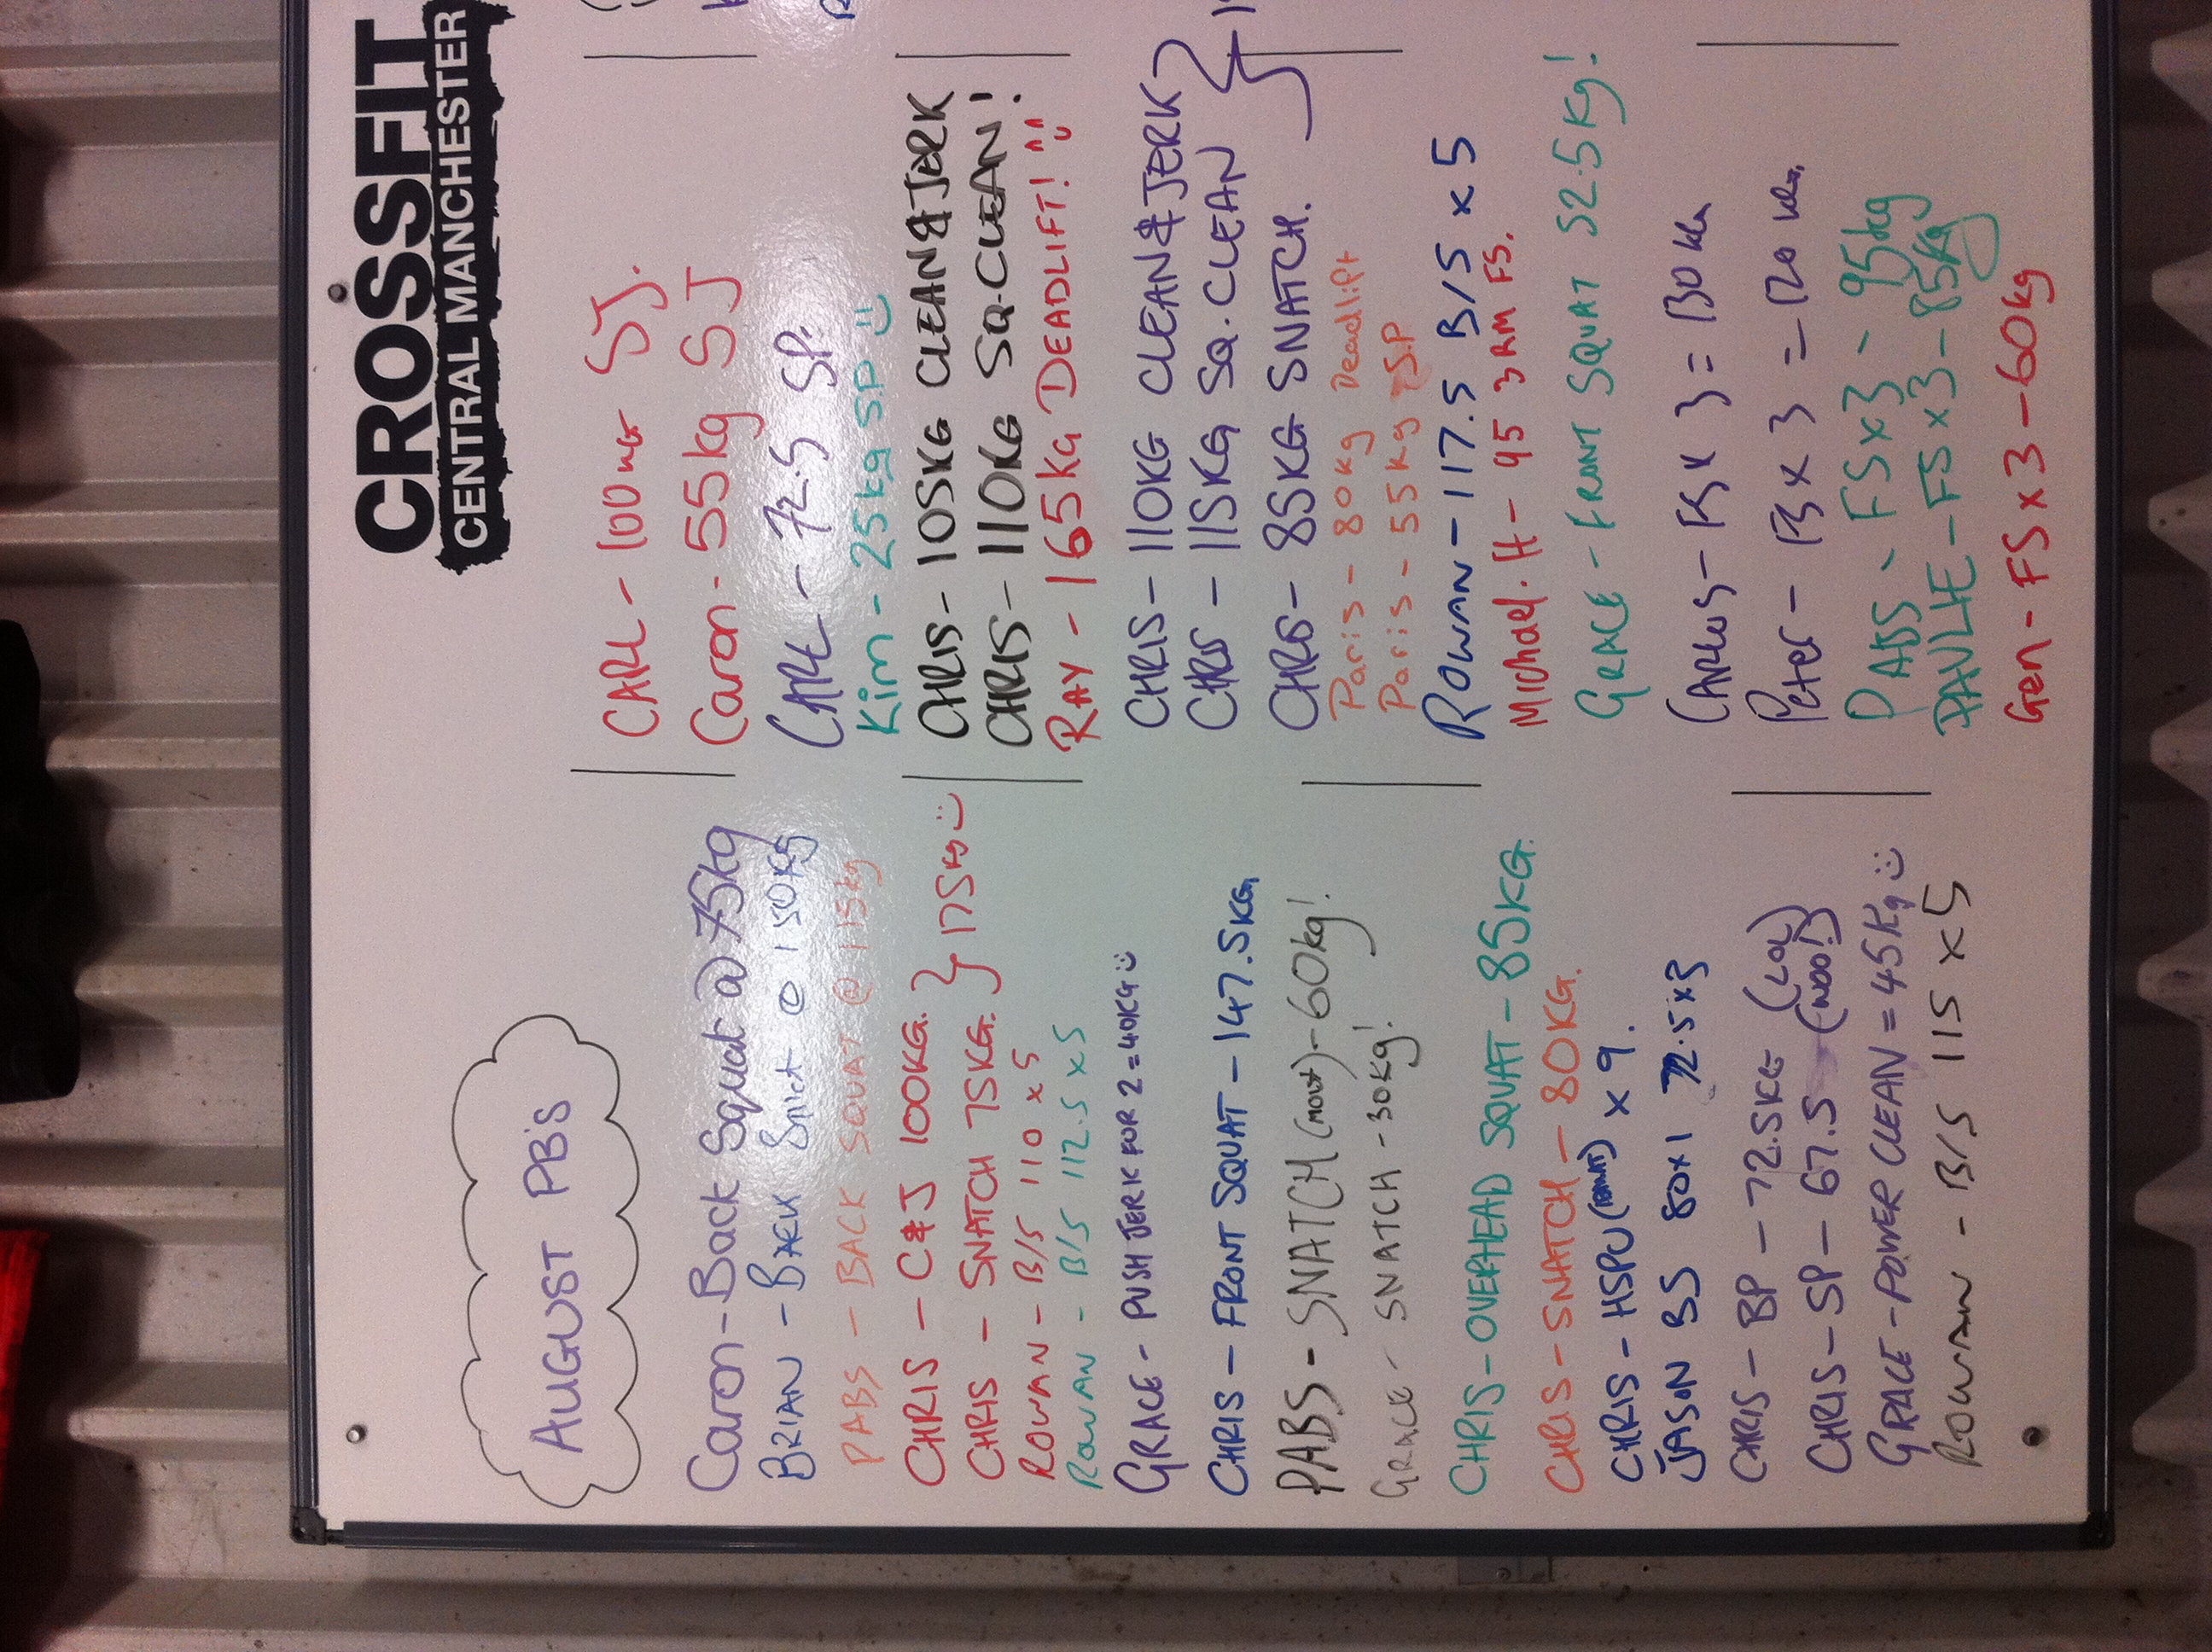 CROSSFIT
CENTRAL MANCHESTER
AUGUST PB'S
Caron - Back Squat @ 75kg
BRIAN - BACK @ 150kg
PABS - BACK SQUAT @ 115kg
CHRIS - C&J 100KG.
CHRIS - SNATCH 75KG. } 175kg :)
ROWAN - B/S 110 x 5
ROWAN - B/S 112.5 x 5
GRACE - PUSH JERK FOR 2 = 40KG :)
CHRIS - FRONT SQUAT - 147.5KG
PABS - SNATCH - 60kg!
GRACE - SNATCH - 30kg!
CHRIS - OVERHEAD SQUAT - 85KG.
CHRIS - SNATCH - 80KG.
CHRIS - HSPU x 9.
JASON BS 80x1 72.5x3
CHRIS - BP - 72.5KG (LOL)
CHRIS - SP - 67.5 (WOO!)
GRACE - POWER CLEAN = 45Kg :)
ROWAN - B/S 115 x 5
CARL - 100KG SJ.
Caron - 55kg SJ
CARL - 72.5 SP.
Kim - 25kg SP :)
CHRIS - 105KG CLEAN & JERK
CHRIS - 110KG SQ. CLEAN!
RAY - 165kg DEADLIFT! ^^
CHRIS - 110KG CLEAN & JERK
CHRIS - 115KG SQ. CLEAN
CHRIS - 85KG SNATCH.
Paris - 80kg Deadlift
Paris - 55kg SP
ROWAN - 117.5 B/S x 5
Michael.H - 95 3RM FS.
GRACE - FRONT SQUAT 52.5Kg!
CARLOS - FS x 3 = 130 KG
Peter - FS x 3 = 120 KG.
PABS - FS x 3 - 95kg
PAVLHE - FS x 3 - 85kg
Gen - FS x 3 - 60kg